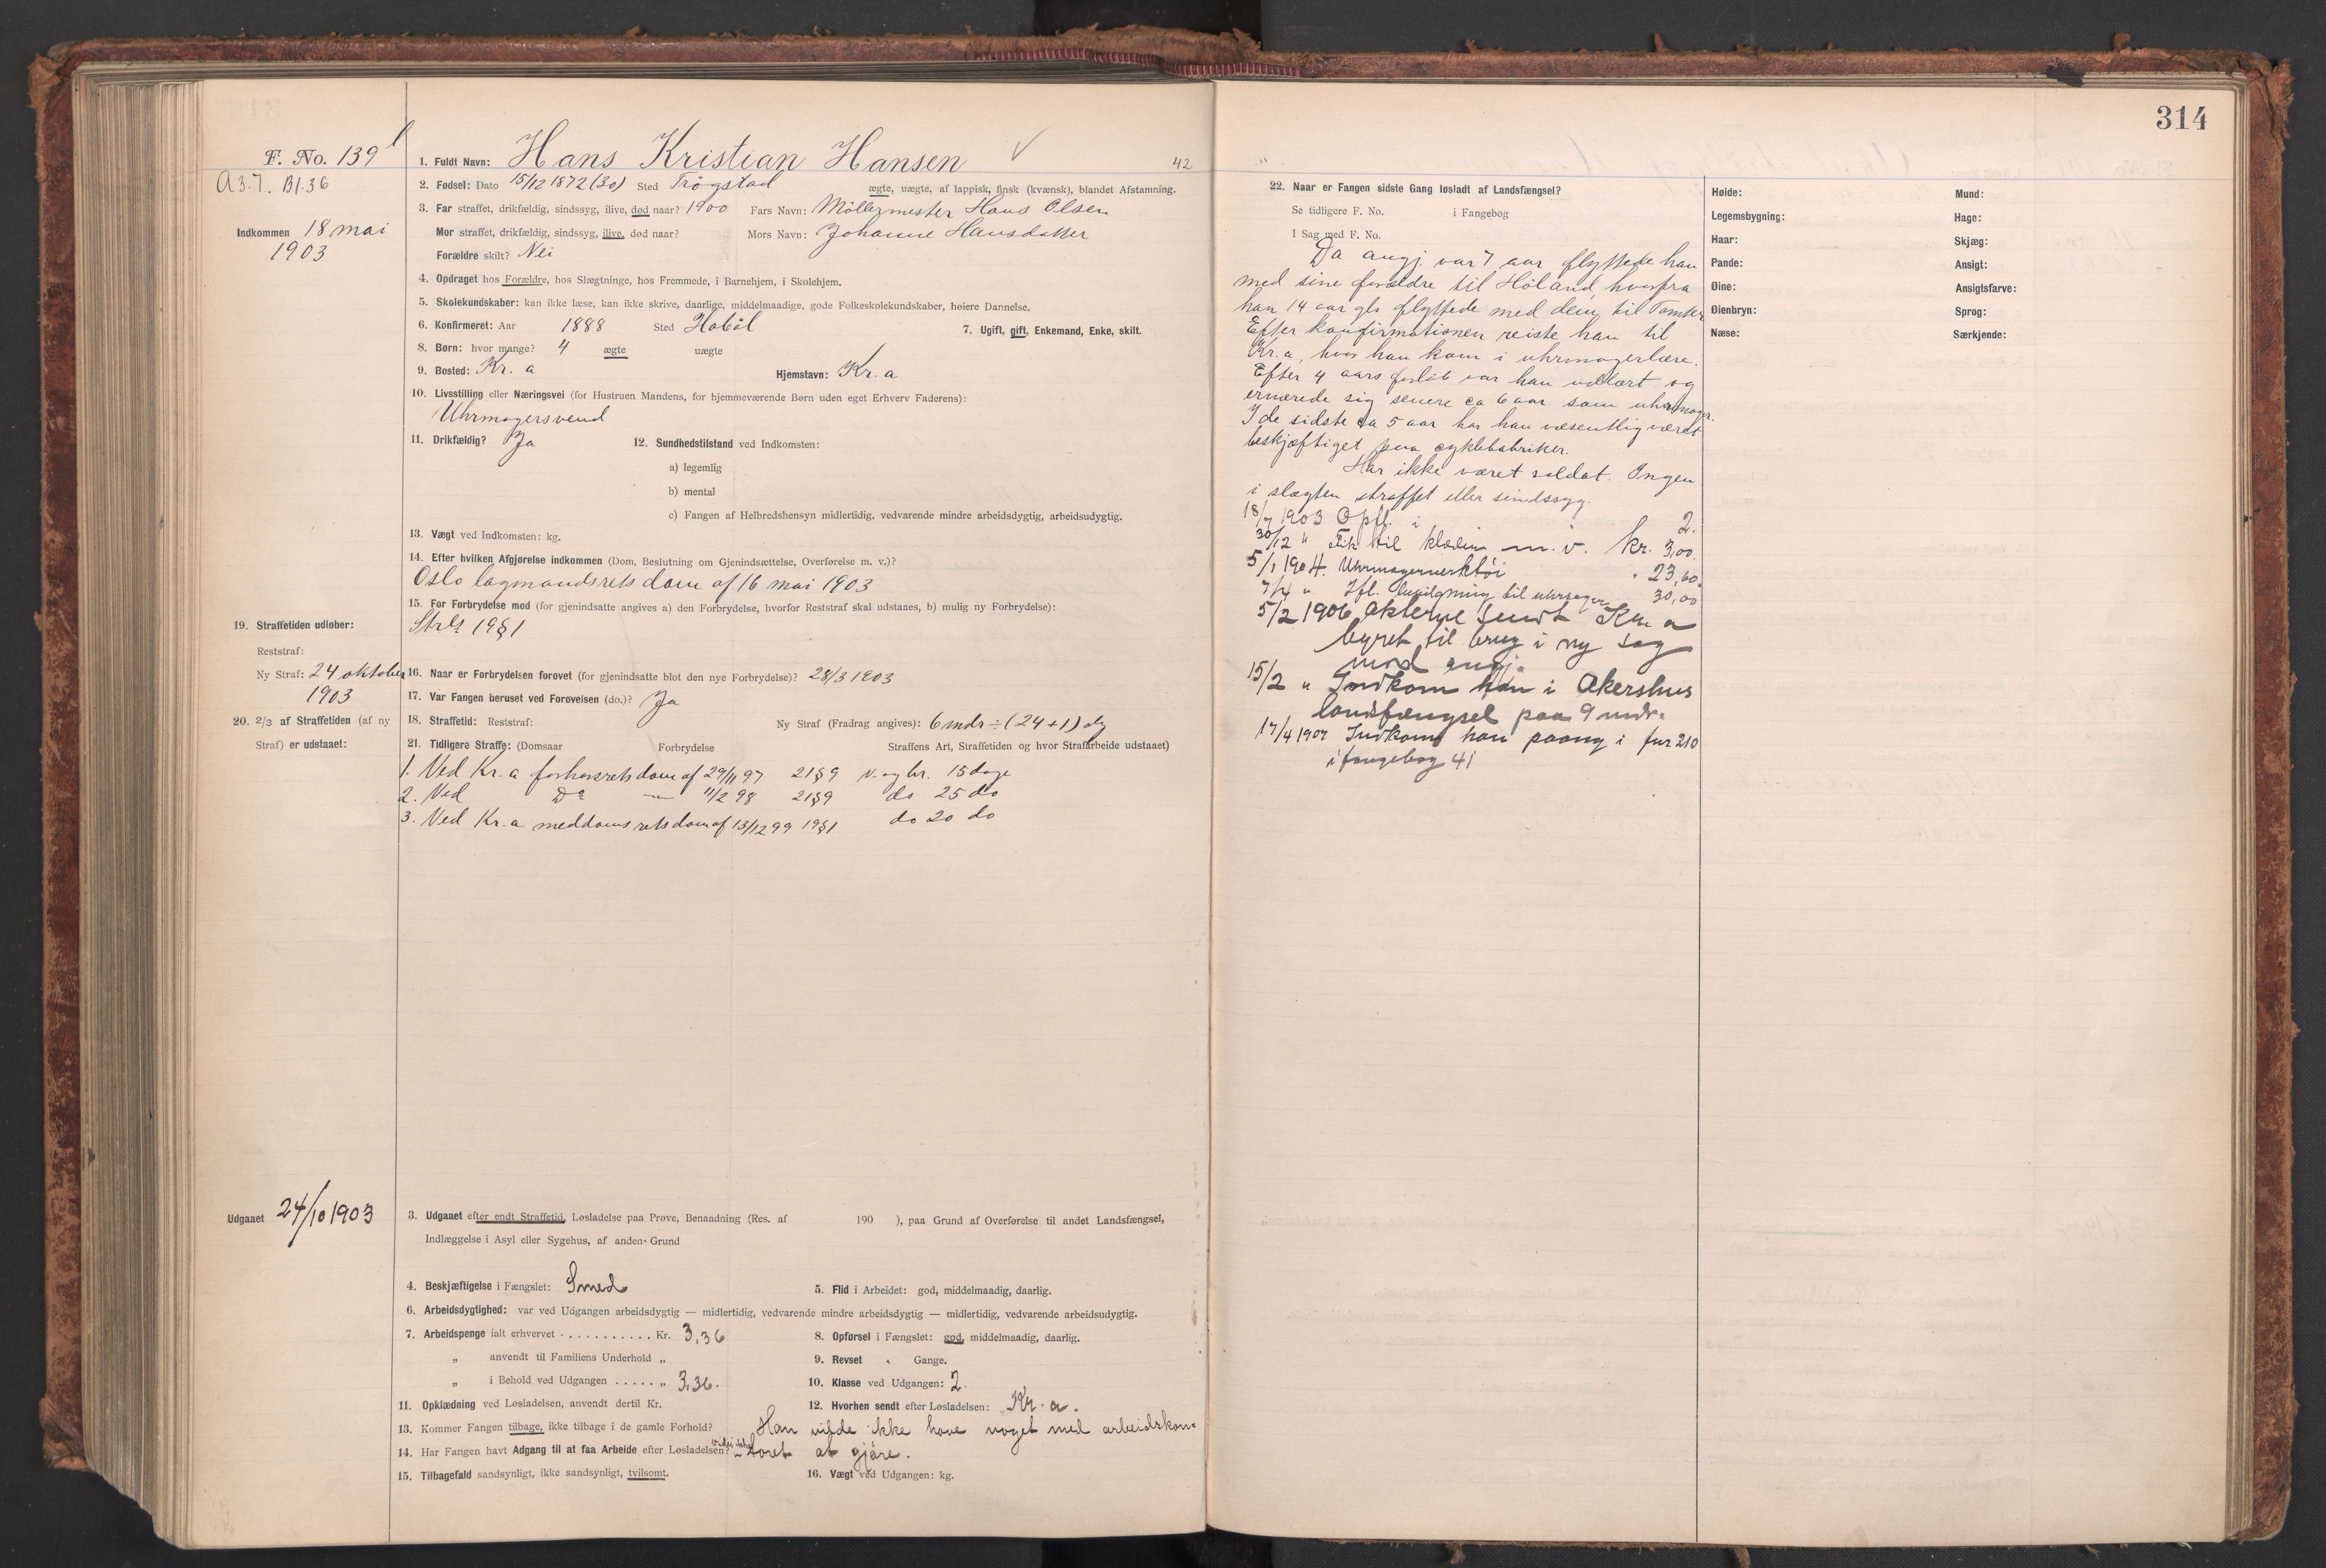 314
F. No. 139
A 3.7. Bl. 36
Indkommen 18 mai
1903
1. Fuldt Navn: Hans Kristian Hansen 42
2. Fødsel: Dato 15/12 1872 (30) Sted Trögstad ægte, uægte, af lappisk, finsk (kvænsk), blandet Afstamning.
3. Far straffet, drikfældig, sindssyg, ilive, død naar? 1900 Fars Navn: Möllermester Hans Olsen
Mor straffet, drikfældig, sindssyg, ilive, død naar? Mors Navn: Johanne Hansdatter
Forældre skilt? Nei
4. Opdraget hos Forældre, hos Slægtninge, hos Fremmede, i Barnehjem, i Skolehjem.
5. Skolekundskaber: kan ikke læse, kan ikke skrive, daarlige, middelmaadige, gode Folkeskolekundskaber, høiere Dannelse.
6. Konfirmeret: Aar 1888 Sted Haböl 7. Ugift, gift, Enkemand, Enke, skilt.
8. Børn: hvor mange? 4 ægte uægte
9. Bosted: Kr. a Hjemstavn: Kr. a
10. Livsstilling eller Næringsvei (for Hustruen Mandens, for hjemmeværende Børn uden eget Erhverv Faderens):
Uhrmagersvend
11. Drikfældig? Ja 12. Sundhedstilstand ved Indkomsten:
a) legemlig
b) mental
c) Fangen af Helbredshensyn midlertidig, vedvarende mindre arbeidsdygtig, arbeidsudygtig.
13. Vægt ved Indkomsten: kg.
14. Efter hvilken Afgjørelse indkommen (Dom, Beslutning om Gjenindsættelse, Overførelse m. v.)?
Oslo lagmandsrets dom af 16 mai 1903
15. For Forbrydelse mod (for gjenindsatte angives a) den Forbrydelse, hvorfor Reststraf skal udstaaes, b) mulig ny Forbrydelse):
Strl: 19§1
19. Straffetiden udløber:
Reststraf:
Ny Straf: 24 oktober
1903
16. Naar er Forbrydelsen forøvet (for gjenindsatte blot den nye Forbrydelse)? 28/3 1903
17. Var Fangen beruset ved Forøvelsen (do.)? Ja
20. 2/3 af Straffetiden (af ny
Straf) er udstaaet:
18. Straffetid: Reststraf: Ny Straf (Fradrag angives): 6 mdr ÷ (24+1) dg
21. Tidligere Straffe: (Domsaar Forbrydelse Straffens Art, Straffetiden og hvor Strafarbeide udstaaet)
1. Ved Kr. a forhørsrets dom af 29/11 97 21§9 v. og br. 15 dage
2. Ved Do — 11/2 98 21§9 do 25 do
3. Ved Kr. a meddomsrets dom af 13/12 99 19§1 do 20 do
Udgaaet 24/10 1903
3. Udgaaet efter endt Straffetid, Løsladelse paa Prøve, Benaadning (Res. af 190 ), paa Grund af Overførelse til andet Landsfængsel,
Indlæggelse i Asyl eller Sygehus, af anden Grund
4. Beskjæftigelse i Fængslet: Smed 5. Flid i Arbeidet: god, middelmaadig, daarlig.
6. Arbeidsdygtighed: var ved Udgangen arbeidsdygtig — midlertidig, vedvarende mindre arbeidsdygtig — midlertidig, vedvarende arbeidsudygtig.
7. Arbeidspenge ialt erhvervet . . . . . . . . . . . Kr. 3,36 8. Opførsel i Fængslet: god, middelmaadig, daarlig.
„ anvendt til Familiens Underhold „ 9. Revset " Gange.
„ i Behold ved Udgangen . . . . . „ 3,36. 10. Klasse ved Udgangen: 2.
11. Opklædning ved Løsladelsen, anvendt dertil Kr. 12. Hvorhen sendt efter Løsladelsen: Kr. a.
13. Kommer Fangen tilbage, ikke tilbage i de gamle Forhold? Han vilde ikke have noget med arbeidskon-
14. Har Fangen havt Adgang til at faa Arbeide efter Løsladelsen? vides ikke toret at gjöre.
15. Tilbagefald sandsynligt, ikke sandsynligt, tvilsomt. 16. Vægt ved Udgangen: kg.
22. Naar er Fangen sidste Gang løsladt af Landsfængsel?
Se tidligere F. No. i Fangebog
I Sag med F. No.
Da angj. var 7 aar flyttede han
med sine forældre til Höland, hvorfra
han 14 aar gl. flyttede med dem til Tomter
Efter konfirmationen reiste han til
Kr. a, hvor han kom i uhrmagerlære.
Efter 4 aars forlöb var han udlært og
ernærede sig senere ca 6 aar som uhrmager.
I de sidste ca 5 aar har han væsentlig været
beskjæftiget paa cyklefabriker.
Har ikke været soldat. Ingen
i slægten straffet eller sindssyg.
18/7 1903 Opfl. i 2.
30/12 " Fik til klæder m. v. kr. 3,00.
5/1 1904. Uhrmagerverktöi " 23,60.
7/4 " Ifl. til uhrsager 30,00
5/2 1906 Akterne sendt Kr. a
byret til brug i ny sag
mod angj.
15/2 " Indkom han i Akershus
landsfængsel paa 9 mdr.
17/4 1907 Indkom han paany i fnr 210
i fangebog 41
Høide:
Legemsbygning:
Haar:
Pande:
Øine:
Øienbryn:
Næse:
Mund:
Hage:
Skjæg:
Ansigt:
Ansigtsfarve:
Sprog:
Særkjende: